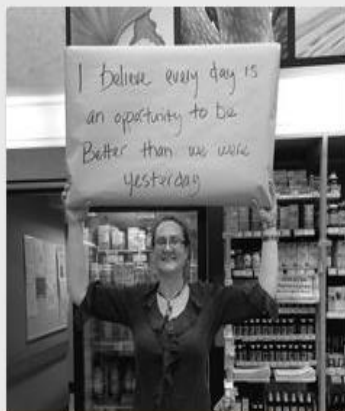 I believe every day is
an oportunity to be
Better than we were
yesterday